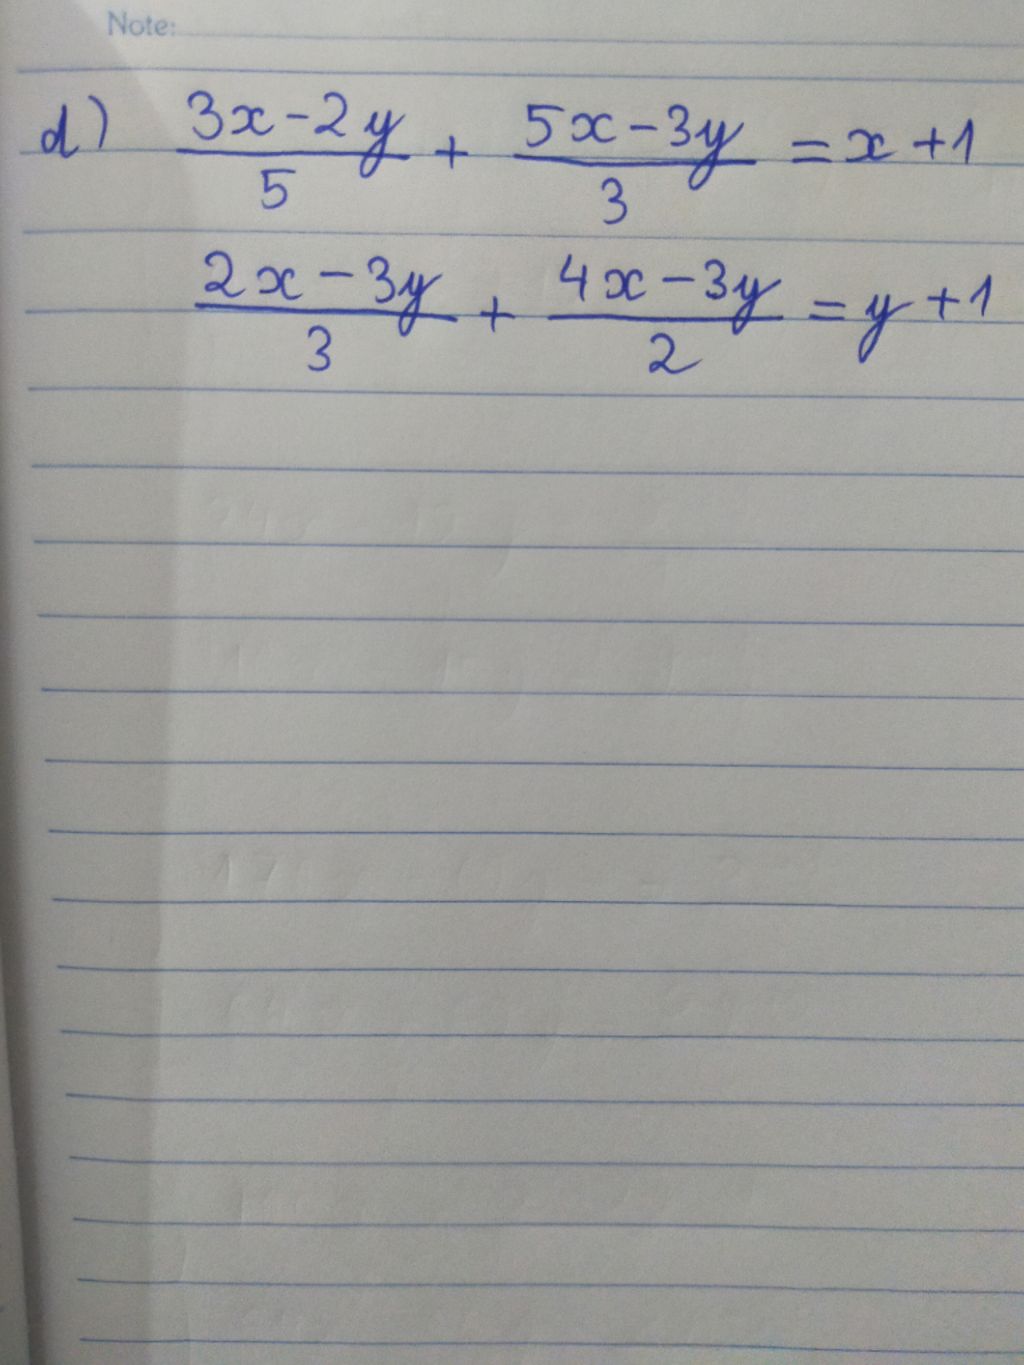 Note:
d) \frac{3x-2y}{5} + \frac{5x-3y}{3} = x+1
\frac{2x-3y}{3} + \frac{4x-3y}{2} = y+1